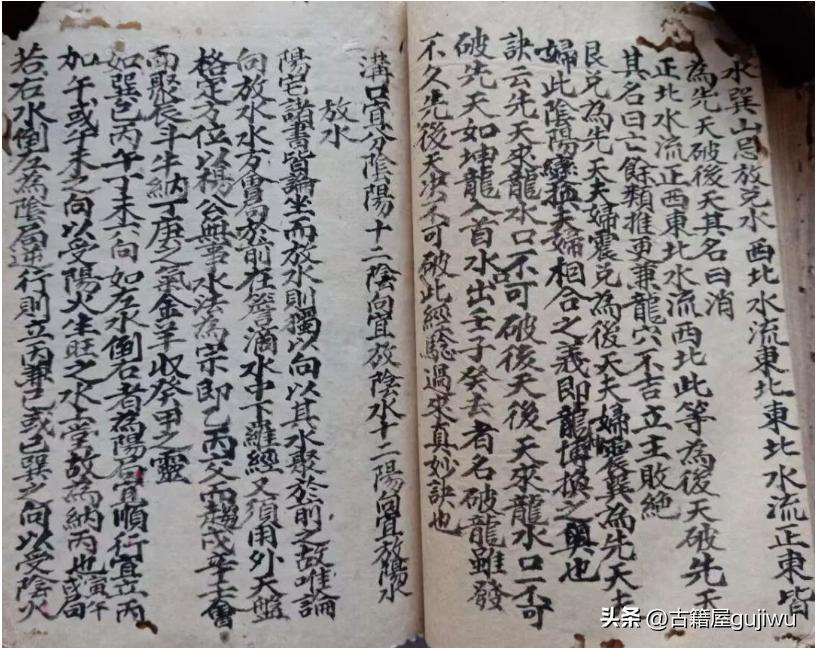 水巽山忌放兑水 西北水流東北東北水流正東皆
為先天破後天其名曰消
正北水流正西東北水流西北此等為後天破先天
其名曰亡餘類推更兼龍穴不吉立主敗絶
艮兑為先天夫婦震兑為後天夫婦震巽為先天夫
婦此陰陽夫婦相合之義即龍博換之奥也
訣云先天來龍水口不可破後天後天來龍水口不可
破先天如坤龍入首水出壬子癸去者名破龍雖發
不久先後天决不可破此經驗過來真妙訣也
溝口宜分陰陽十二陰向宜放陰水十二陽向宜放陽水
放水
陽宅諸書皆論坐而放水則獨以向以其水聚於前之故唯論
向放水水方會局於前在簷滴水中下羅經又須用外天盤
格定方位以楊公無事水法為宗即乙丙交而趨戌辛壬會
而聚辰斗牛納丁庚之氣金羊收癸甲之靈
如巽巳丙午丁未六向如左水倒右者為陽局宜順行宜立丙
加午或午未之向以受陽火生旺之水上堂故為納丙也寅午戌局
若右水倒左為陰局逆行則立丙兼巳或巳巽之向以受陰火
头条 @古籍屋gujiwu